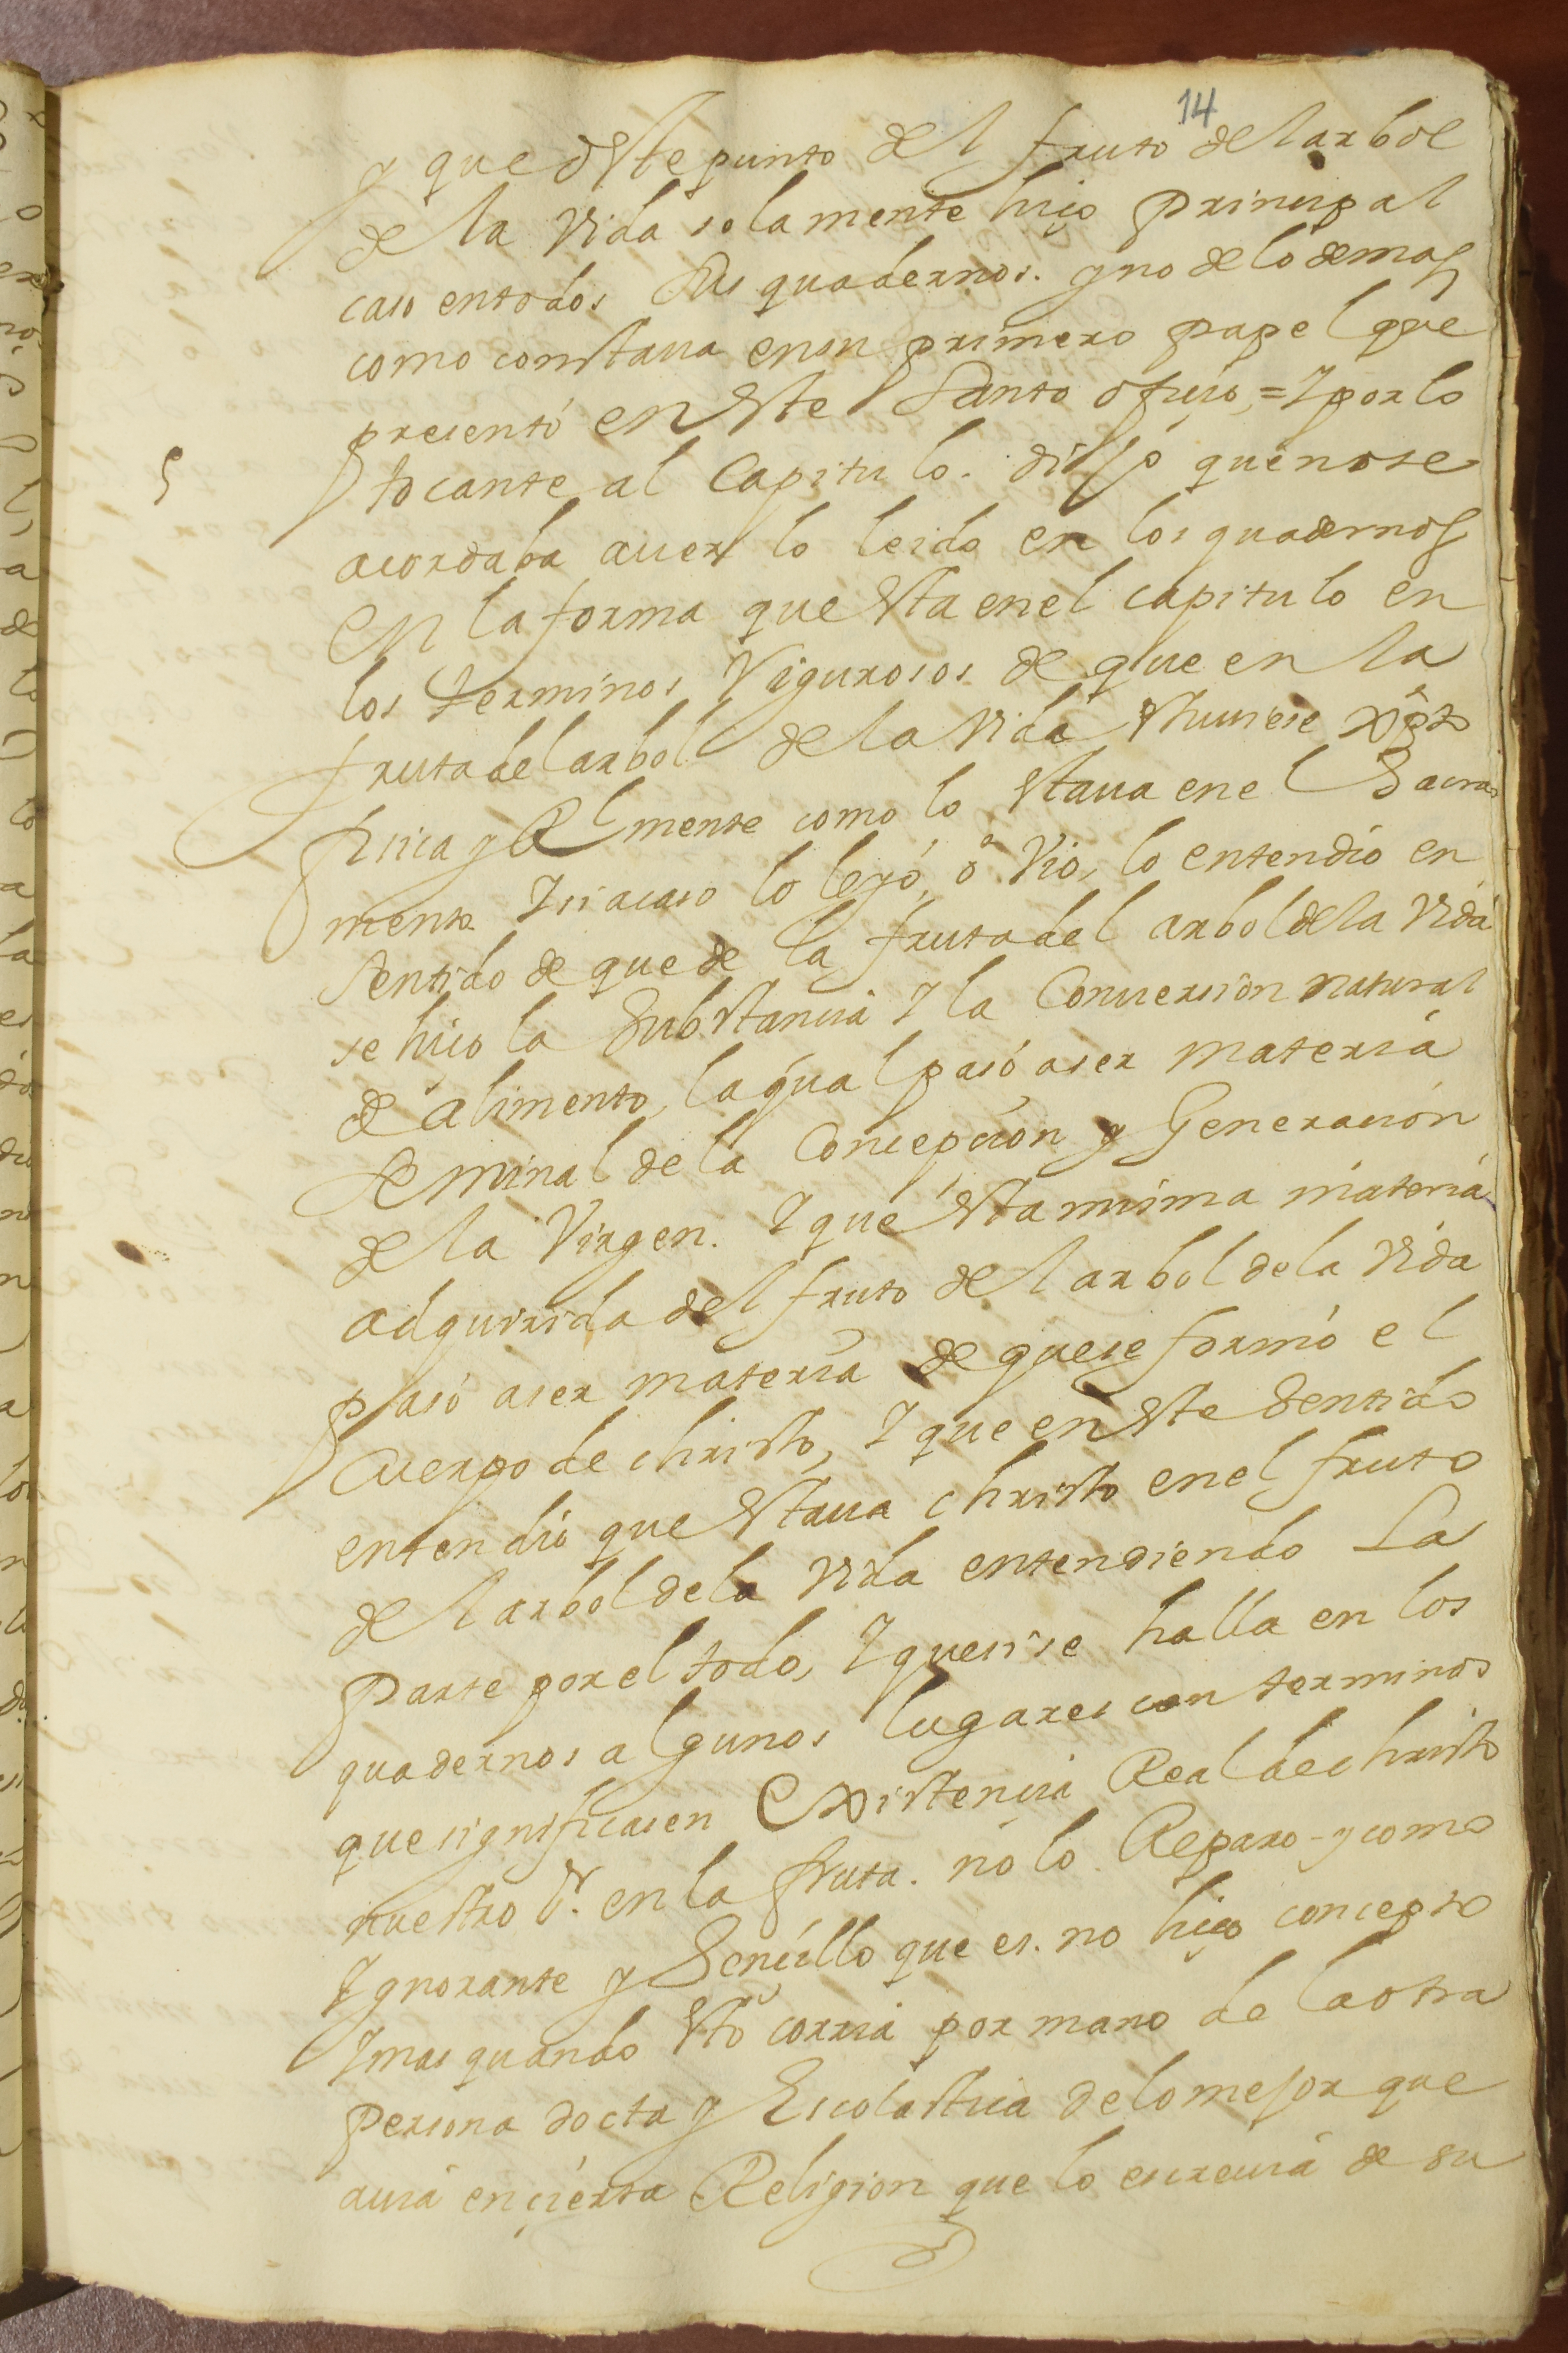 14
y que deste punto del fruto del arbol
de la Vida solamente hiço principal
caso en todos sus quadernos. y no de lo demas
como constaua en un primero papel que
presentó en este Santo ofiçio, = Y por lo
5 tocante al Capitulo. dijo que no se
acordaba auerlo leido en los quadernos
en la forma que esta en el capitulo en
los terminos Rigurosos de que en la
fruta del arbol de la Vida estuuiese xpto
fisica y Rl mente como lo estaua en el Sacra
mento. Y si acaso lo leyó, o Vio, lo entendio en
sentido de que de la fruta del arbol de la Vida
se hiço la Substancia Y la Conuersion natural
de alimento, la qual pasó a ser materia
seminal de la Concepcion y Generacion
de la Virgen. Y que esta misma materia
adquirida del fruto del arbol de la Vida
pasó a ser materia de que se formó el
Cuerpo de christo, Y que en este Sentido
entendio que estaua christo en el fruto
del arbol de la Vida entendiendo La
Parte por el todo, Y que si se halla en los
quadernos algunos lugares con terminos
que significasen Existencia Real de christo
nuestro Sr. en la fruta. no lo Reparo - y como
Ygnorante y Sencillo que es. no hiço concepto
Y mas quando esto corria por mano de la otra
Persona docta y Escolastica de lo mejor que
auia en cierta Religion que lo escreuia de su